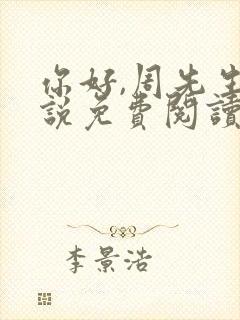 你好,周先生
說免費閱讀
李景浩